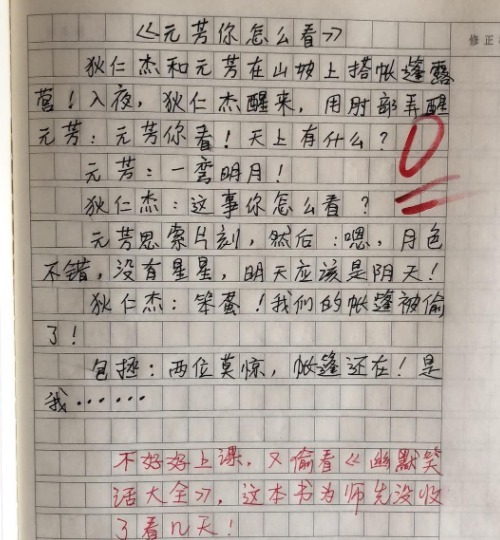 修正
《元芳你怎么看》
狄仁杰和元芳在山坡上搭帐蓬露
营!入夜,狄仁杰醒来,用肘部弄醒
元芳:元芳你看!天上有什么?
元芳:一弯明月!
狄仁杰:这事你怎么看?
元芳思索片刻,然后:嗯,月色
不错,没有星星,明天应该是阴天!
狄仁杰:笨蛋!我们的帐蓬被偷
了!
包拯:两位莫惊,帐蓬还在!是
我······
0
不好好上课,又偷看《幽默笑
话大全》,这本书为师先没收
了看几天!